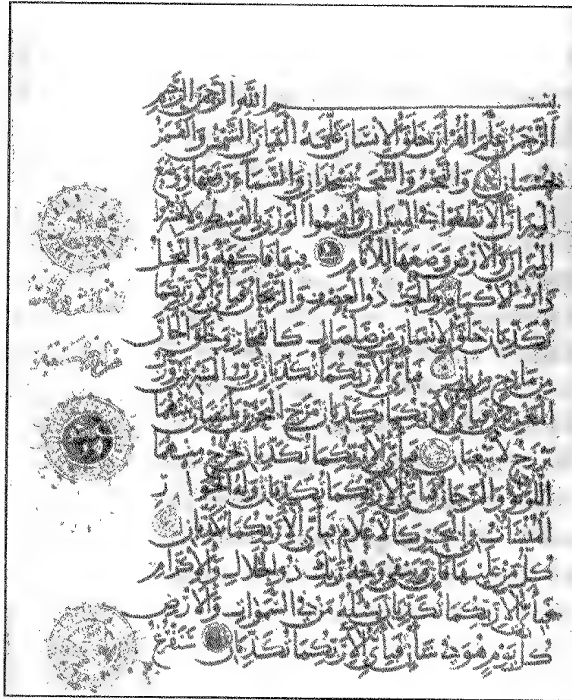 بسم الله الرحمن الرحيم
الرحمن علم القرآن خلق الإنسان علمه البيان الشمس والقمر
بحسبان والنجم والشجر يسجدان والسماء رفعها ووضع
الميزان ألا تطغوا في الميزان وأقيموا الوزن بالقسط ولا تخسروا
الميزان والأرض وضعها للأنام فيها فاكهة والنخل
ذات الأكمام والحب ذو العصف والريحان فبأي آلاء ربكما
تكذبان خلق الإنسان من صلصال كالفخار وخلق الجان
من مارج من نار فبأي آلاء ربكما تكذبان رب المشرقين ورب
المغربين فبأي آلاء ربكما تكذبان مرج البحرين يلتقيان بينهما
برزخ لا يبغيان فبأي آلاء ربكما تكذبان يخرج منهما
اللؤلؤ والمرجان فبأي آلاء ربكما تكذبان وله الجوار
المنشآت في البحر كالأعلام فبأي آلاء ربكما تكذبان
كل من عليها فان ويبقى وجه ربك ذو الجلال والإكرام
فبأي آلاء ربكما تكذبان يسئله من في السموات والأرض
كل يوم هو في شأن فبأي آلاء ربكما تكذبان سنفرغ